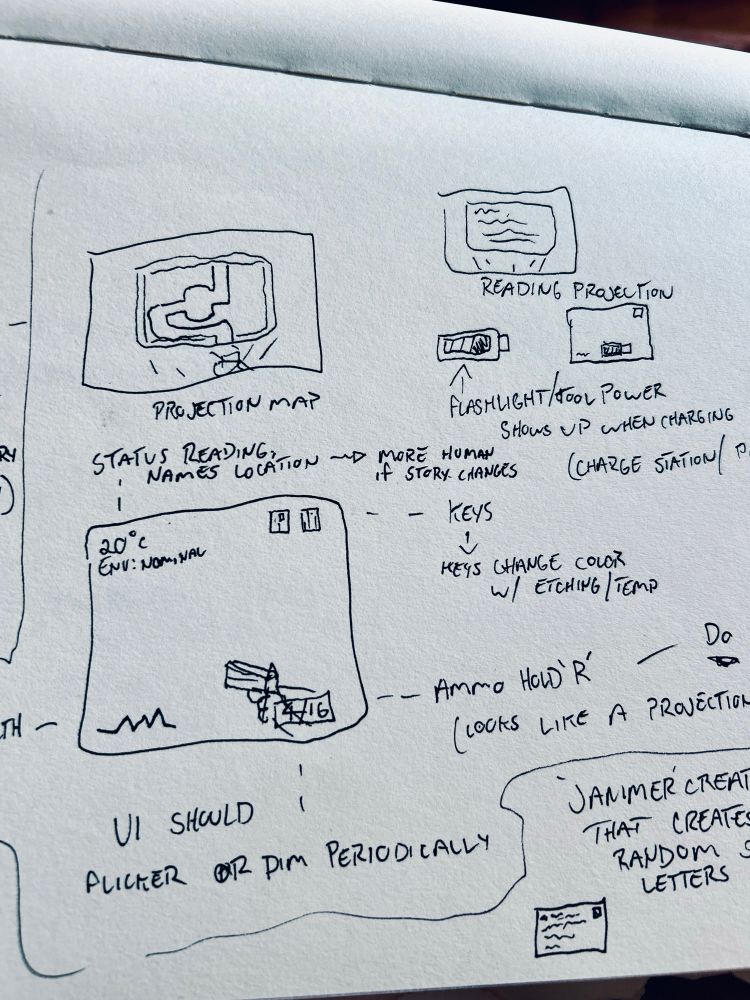 READING PROJECTION
PROJECTION MAP
FLASHLIGHT/TOOL POWER
SHOWS UP WHEN CHARGING
(CHARGE STATION/
STATUS READING,
NAMES LOCATION → MORE HUMAN
IF STORY CHANGES
RY
20°C
ENV: NOMINAL
KEYS
KEYS CHANGE COLOR
W/ ETCHING/TEMP
4/16
AMMO HOLD 'R'
(LOOKS LIKE A PROJECTION
Do
TH
UI SHOULD
FLICKER OR DIM PERIODICALLY
'JANIMER' CREAT
THAT CREATES
RANDOM S
LETTERS